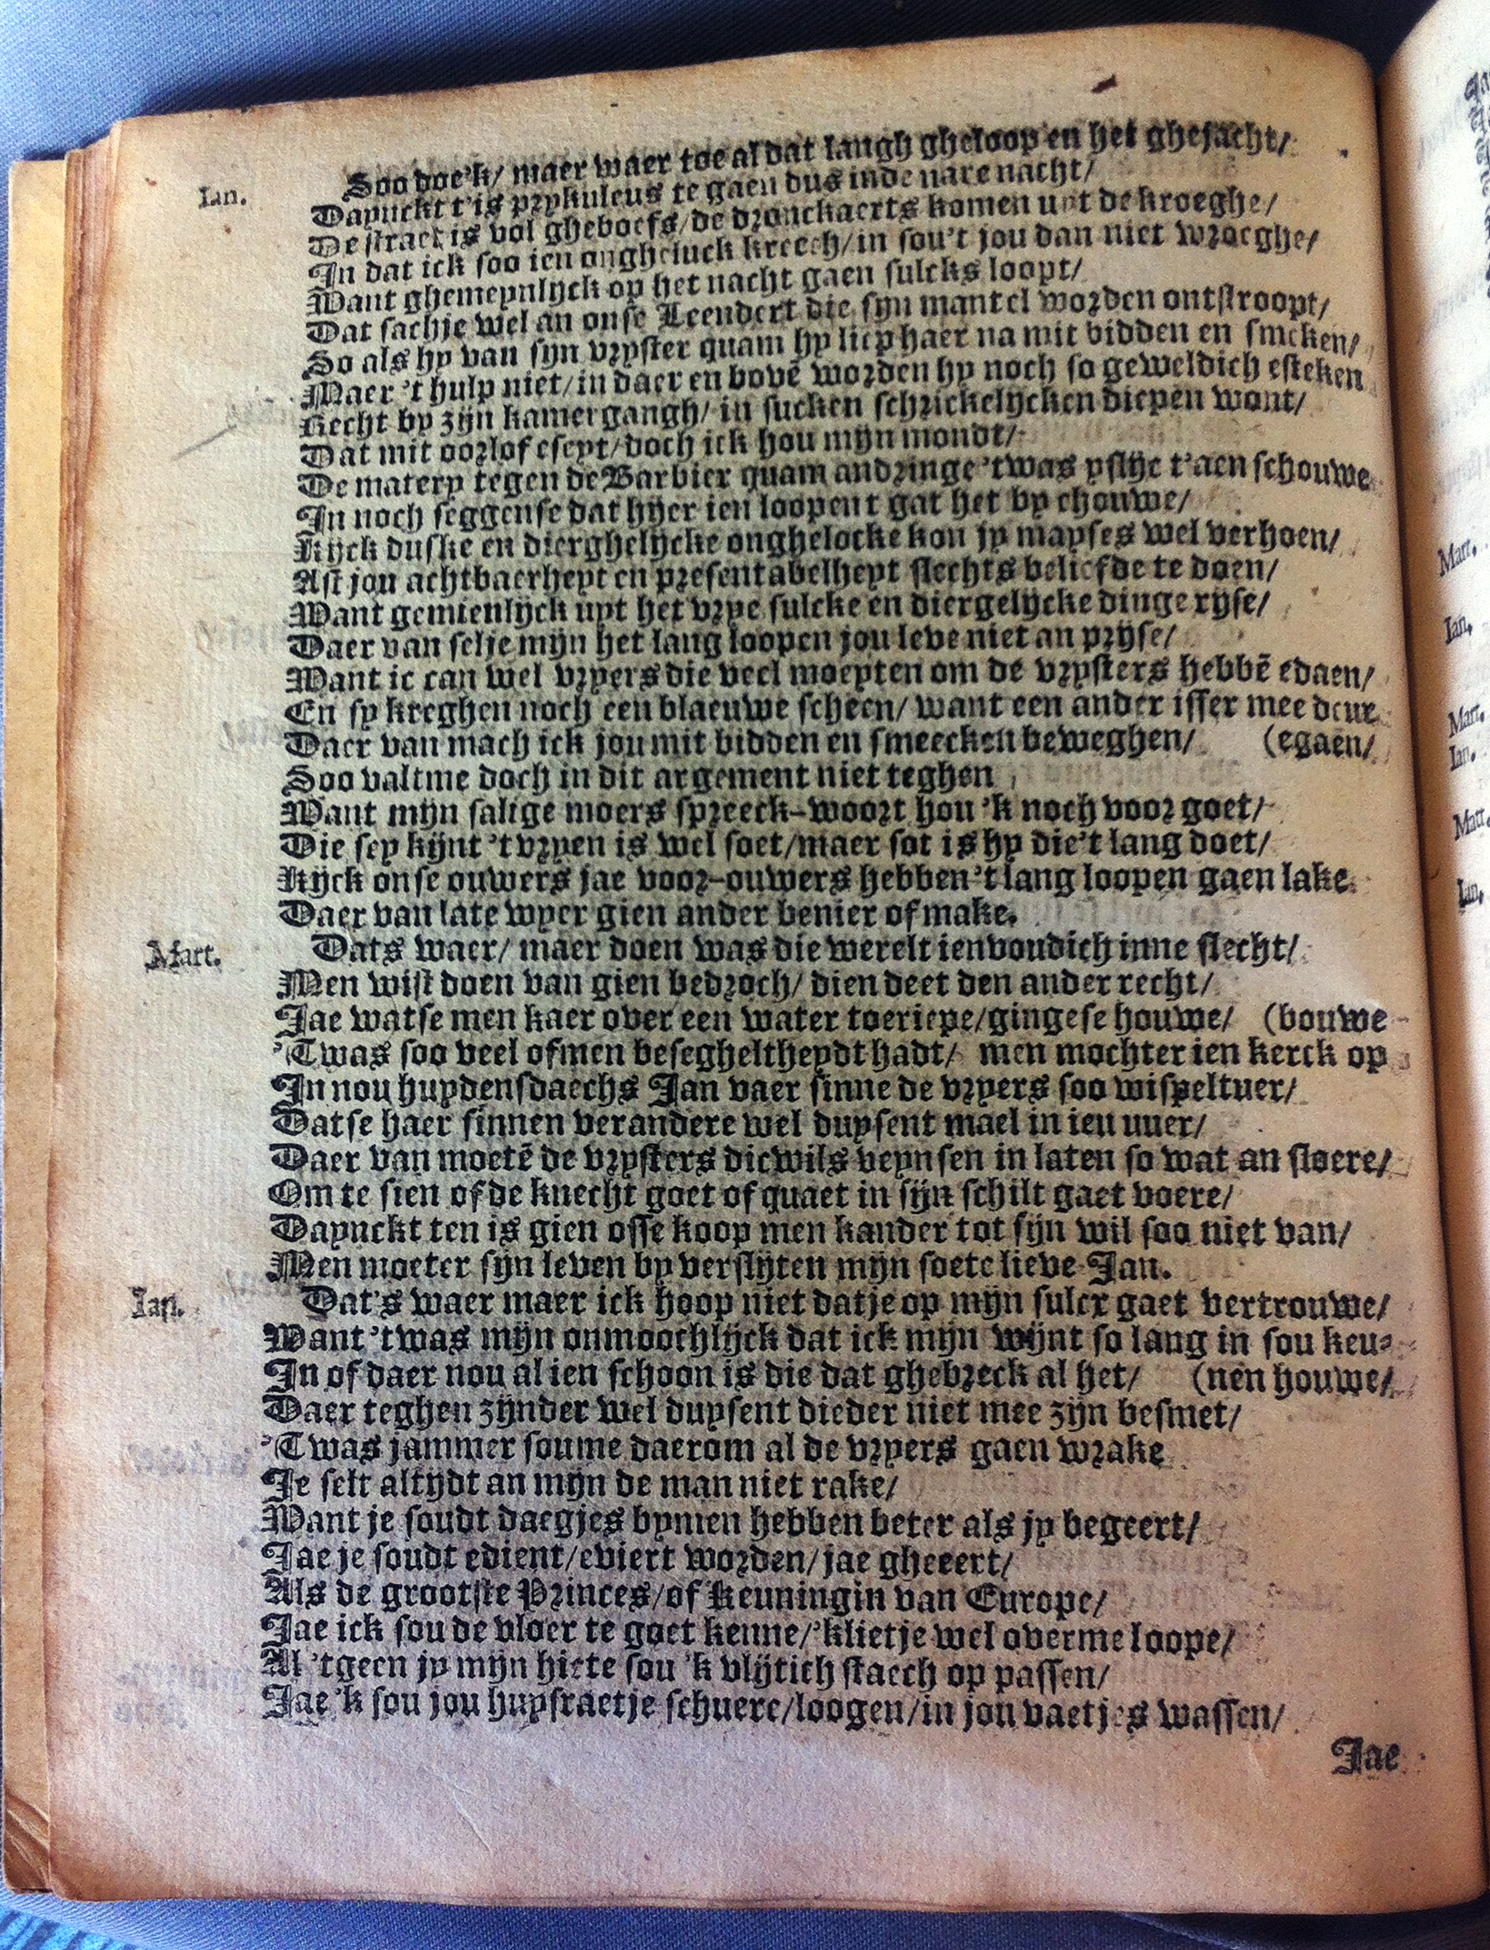 Ian. Soo doe'k/ maer waer toe al dat langh gheloop en het ghejacht/
Dapuckt t'is prykuleus te gaen dus inde nare nacht/
De straet is vol gheboefs/de dronckaerts komen uyt de kroeghe/
In dat ick soo ien ongheluck kreech/in sou't jou dan niet wroeghe/
Want ghemeynlijck op het nacht gaen sulcks loopt/
Dat sachje wel an onse Leendert die sijn mantel worden ontstroopt/
So als hy van sijn vryster quam hy liep haer na mit bidden en smeken/
Maer 't hulp niet/in daer en bovē worden hy noch so geweldich esteken
Recht by zijn kamergangh/ in sucken schrickelijcken diepen wont/
Dat mit oorlof eseyt/doch ick hou mijn mondt/
De matery tegen de Barbier quam andringe 'twas yslijc t'aen schouwe
In noch seggense dat hijer ien loopent gat het by ehouwe/
Kijck duske en dierghelijcke onghelocke kon jy mayses wel verhoen/
Ast jou achtbaerheyt en presentabelheyt slechts beliefde te doen/
Want gemienlijck uyt het vrye sulcke en diergelijcke dinge ryse/
Daer van selje mijn het lang loopen jou leve niet an pryse/
Want ic can wel vryers die veel moeyten om de vrysters hebbē edaen/
En sy kreghen noch een blaeuwe scheen/ want een ander isser mee deur
Daer van mach ick jou mit bidden en smeecken beweghen/ (egaen/
Soo valtme doch in dit argement niet teghen
Want mijn salige moers spreeck-woort hou 'k noch voor goet/
Die sey kijnt 't vryen is wel soet/maer sot is hy die't lang doet/
Kijck onse ouwers jae voor-ouwers hebben 't lang loopen gaen lake
Daer van late wyer gien ander benier of make.
Mart. Dats waer/ maer doen was die werelt ienvoudich inne slecht/
Men wist doen van gien bedroch/ dien deet den ander recht/
Jae watse men kaer over een water toeriepe/gingese houwe/ (bouwe
'Twas soo veel ofmen besegheltheydt hadt/ men mochter ien kerck op
In nou huydensdaechs Jan vaer sinne de vryers soo wispeltuer/
Datse haer sinnen verandere wel duysent mael in ien uuer/
Daer van moetē de vrysters dicwils veynsen in laten so wat an sloere/
Om te sien of de knecht goet of quaet in sijn schilt gaet voere/
Dapuckt ten is gien osse koop men kander tot sijn wil soo niet van/
Men moeter sijn leven by verslijten mijn soete lieve Jan.
Ian. Dat's waer maer ick hoop niet datje op mijn sulcx gaet vertrouwe/
Want 'twas mijn onmoochlijck dat ick mijn wijnt so lang in sou keu-
In of daer nou al ien schoon is die dat ghebreck al het/ (nen houwe/
Daer teghen zijnder wel duysent dieder niet mee zijn besmet/
'Twas jammer soume daerom al de vryers gaen wrake
Je selt altijdt an mijn de man niet rake/
Want je soudt daegjes bymen hebben beter als jy begeert/
Jae je soudt edient/eviert worden/jae gheeert/
Als de grootste Princes/of Keuningin van Europe/
Jae ick sou de vloer te goet kenne/'klietje wel overme loope/
Al 'tgeen jy mijn hiete sou 'k vlijtich staech op passen/
Jae 'k sou jou huysraetje schuere/loogen/in jou vaetjes wassen/
Jae
Mart.
Ian.
Mart.
Ian.
Mart.
Ian.